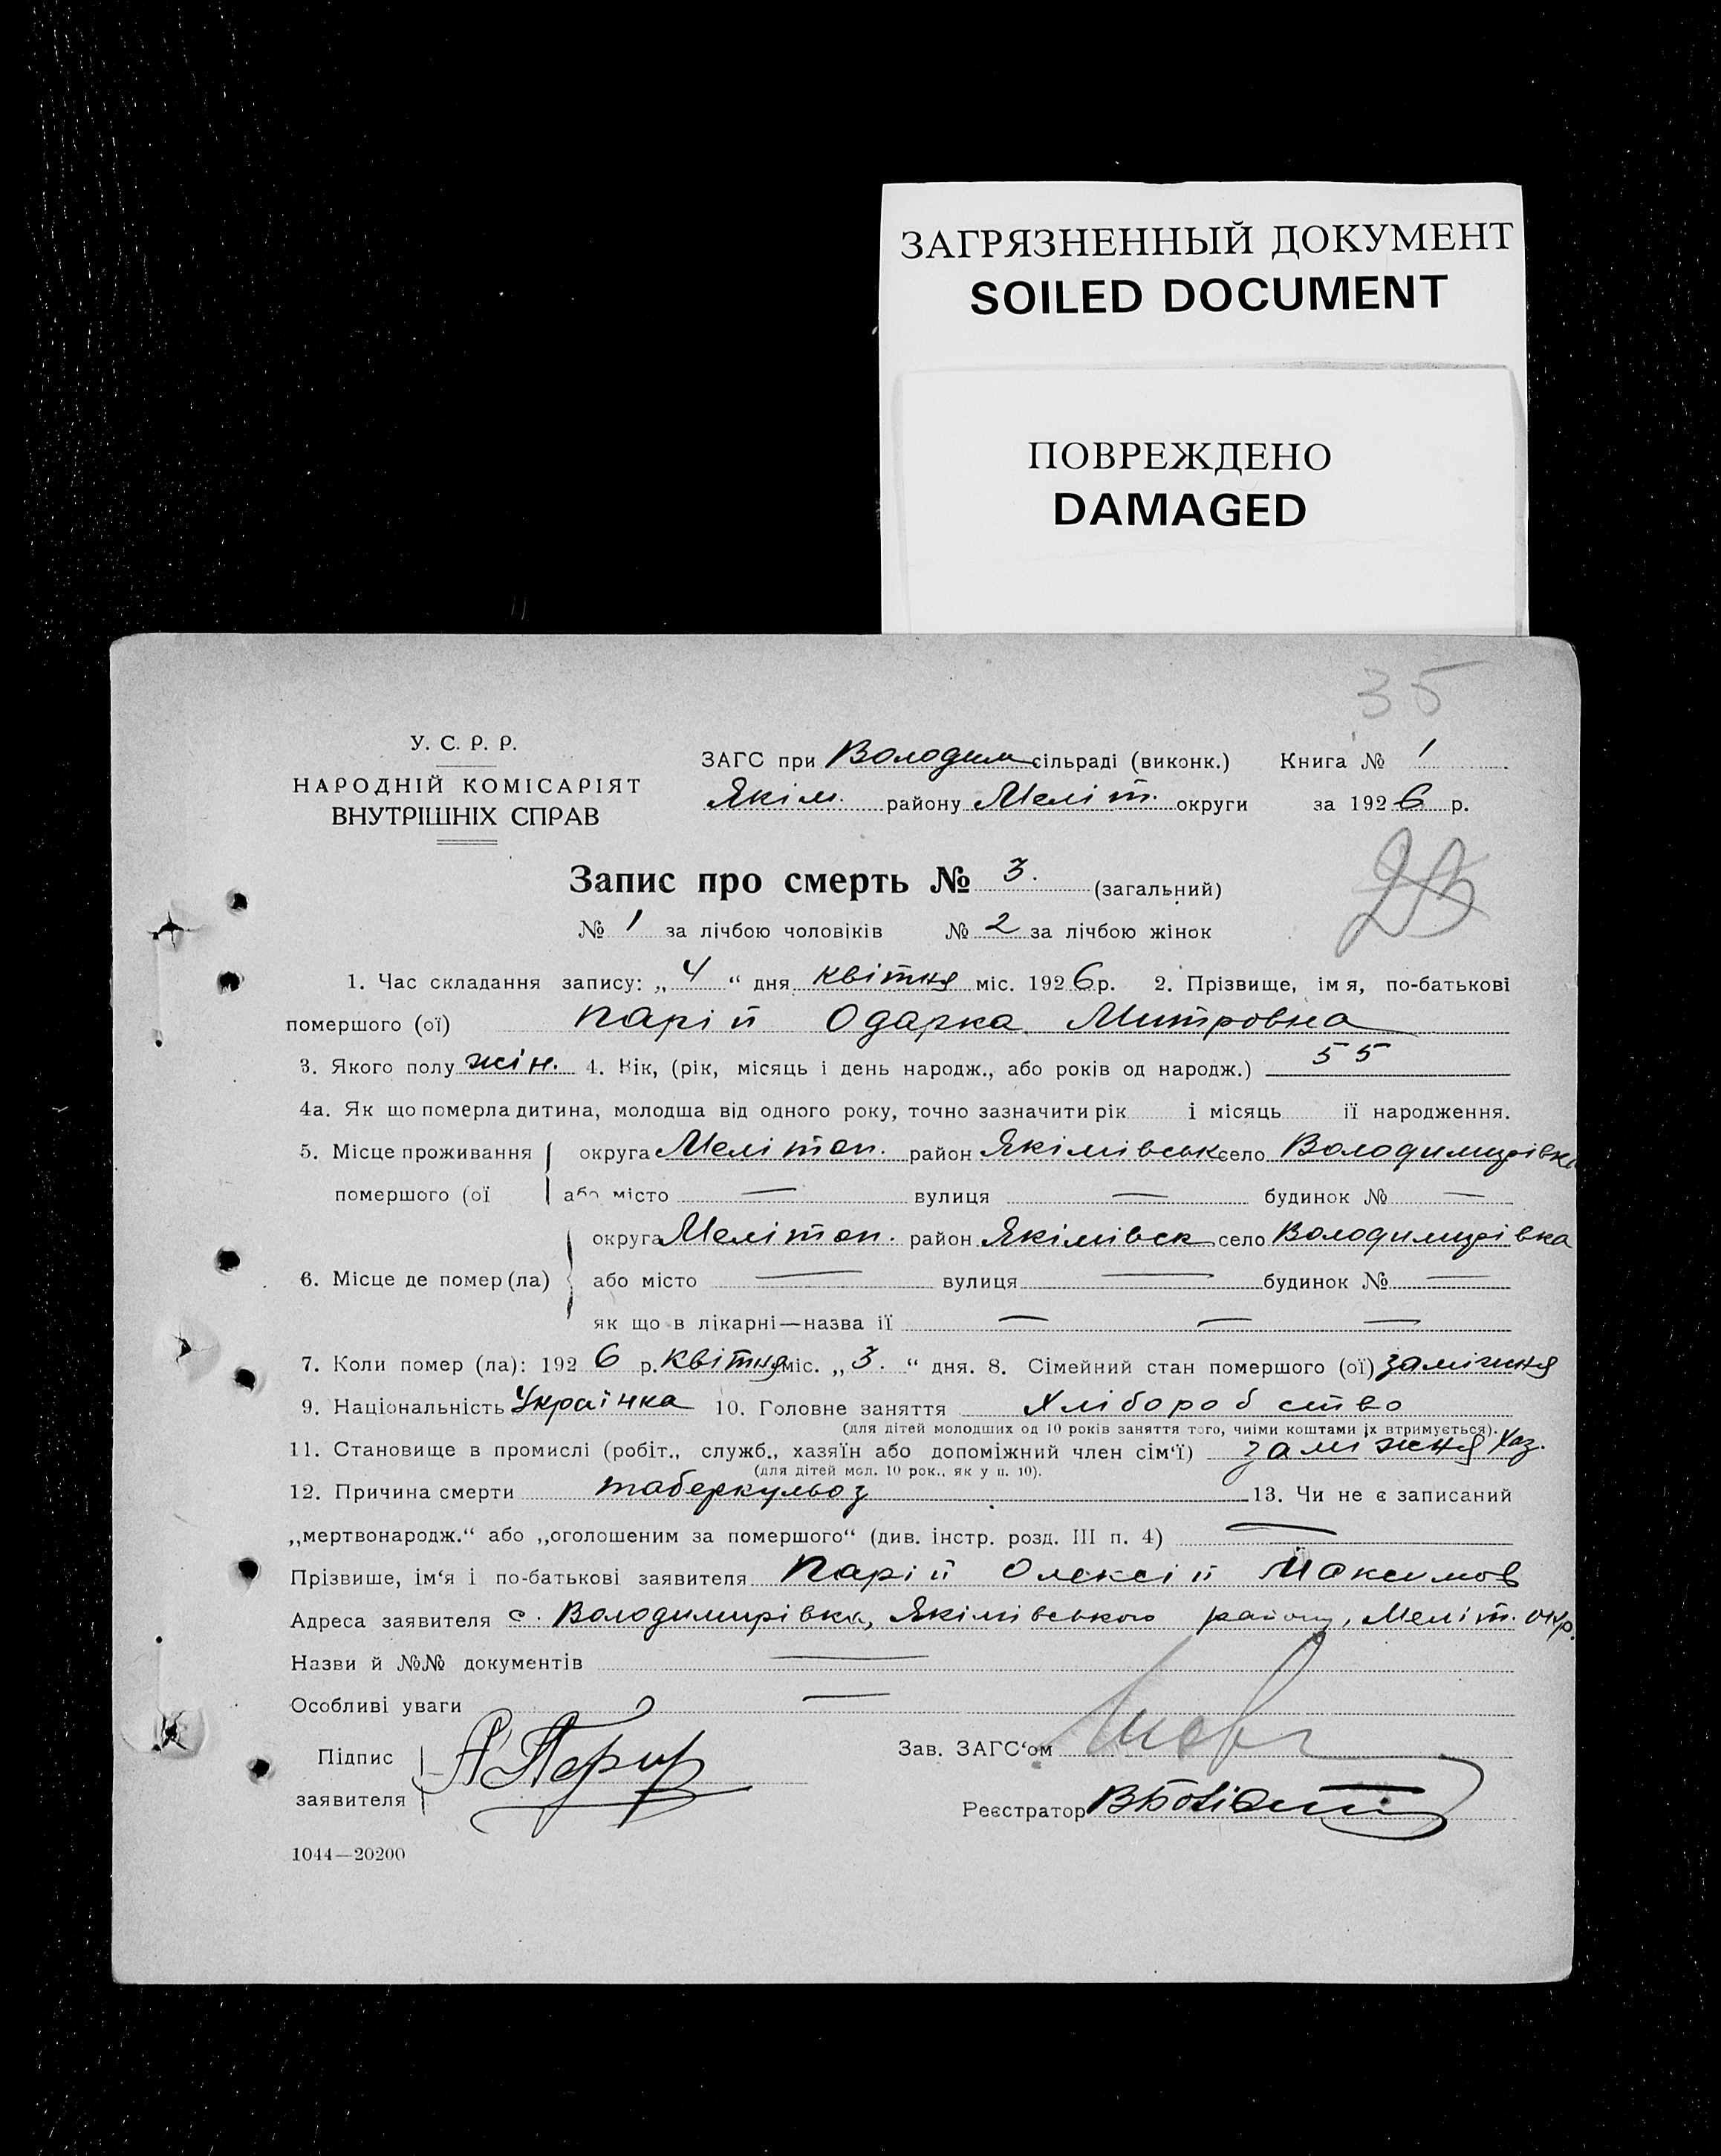 ЗАГРЯЗНЕННЫЙ ДОКУМЕНТ
SOILED DOCUMENT
ПОВРЕЖДЕНО
DAMAGED
35
У. С. Р. Р.
НАРОДНІЙ КОМІСАРІЯТ
ВНУТРІШНІХ СПРАВ
ЗАГС при Володим сільраді (виконк.) Книга № 1
Якім. району Меліт. округи за 1926 р.
Запис про смерть № 3. (загальний)
№ 1 за лічбою чоловіків № 2 за лічбою жінок
1. Час складання запису: „4“ дня квітня міс. 1926 р. 2. Прізвище, імя, по-батькові
помершого (ої) Парій Одарка Митровна
3. Якого полу жін. 4. Вік, (рік, місяць і день народж., або років од народж.) 55
4а. Як що померла дитина, молодша від одного року, точно зазначити рік і місяць її народження.
5. Місце проживання округа Мелітоп. район Якімівськ село Володимирівка
помершого (ої або місто — вулиця — будинок № —
округа Мелітоп. район Якімівськ село Володимирівка
6. Місце де помер (ла) або місто — вулиця — будинок № —
як що в лікарні—назва її — — —
7. Коли помер (ла): 1926 р. квітня міс. „3.“ дня. 8. Сімейний стан помершого (ої) заміжня
9. Національність Українка 10. Головне заняття Хліборобство
(для дітей молодших од 10 років заняття того, чиїми коштами їх втримується).
11. Становище в промислі (робіт., служб., хазяїн або допоміжний член сім‘ї) заміжня Хаз.
(для дітей мол. 10 рок., як у п. 10).
12. Причина смерти таберкульоз 13. Чи не є записаний
„мертвонародж.“ або „оголошеним за помершого“ (див. інстр. розд. III п. 4) —
Прізвише, ім‘я і по-батькові заявителя Парій Олексій Максимов
Адреса заявителя с. Володимирівка, Якімівського району, Меліт. окр.
Назви й №№ документів —
Особливі уваги —
Підпис
заявителя
Зав. ЗАГС‘ом
Реєстратор
1044—20200